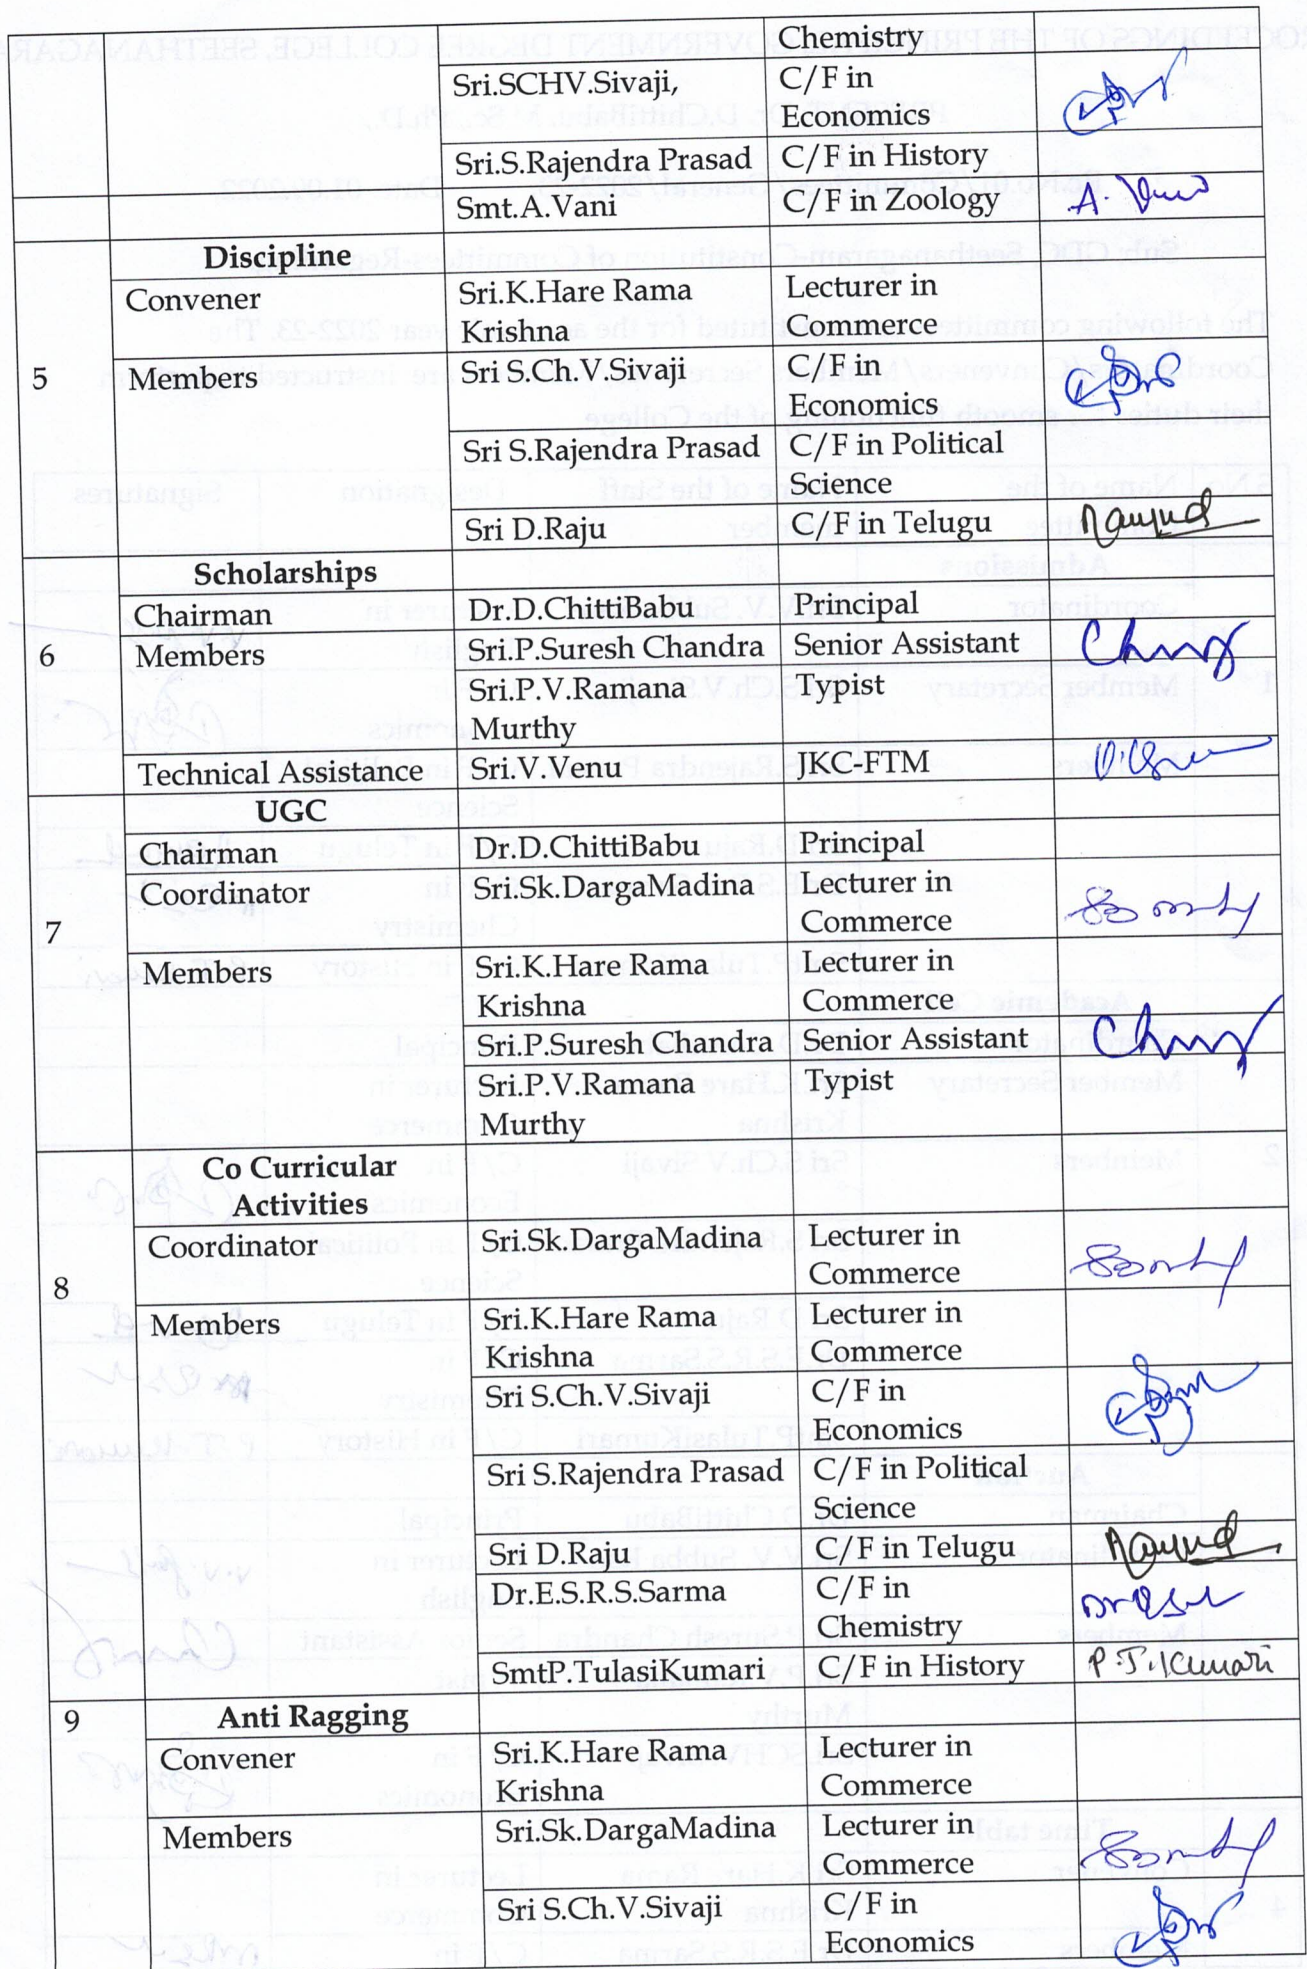 Chemistry
Sri.SCHV.Sivaji, C/F in
Economics
Sri.S.Rajendra Prasad C/F in History
Smt.A.Vani C/F in Zoology A. Vani
Discipline
Convener Sri.K.Hare Rama Lecturer in
Krishna Commerce
5 Members Sri S.Ch.V.Sivaji C/F in
Economics
Sri S.Rajendra Prasad C/F in Political
Science
Sri D.Raju C/F in Telugu
Scholarships
Chairman Dr.D.ChittiBabu Principal
6 Members Sri.P.Suresh Chandra Senior Assistant
Sri.P.V.Ramana Typist
Murthy
Technical Assistance Sri.V.Venu JKC-FTM
UGC
Chairman Dr.D.ChittiBabu Principal
Coordinator Sri.Sk.DargaMadina Lecturer in
7 Commerce
Members Sri.K.Hare Rama Lecturer in
Krishna Commerce
Sri.P.Suresh Chandra Senior Assistant
Sri.P.V.Ramana Typist
Murthy
Co Curricular
Activities
Coordinator Sri.Sk.DargaMadina Lecturer in
8 Commerce
Members Sri.K.Hare Rama Lecturer in
Krishna Commerce
Sri S.Ch.V.Sivaji C/F in
Economics
Sri S.Rajendra Prasad C/F in Political
Science
Sri D.Raju C/F in Telugu
Dr.E.S.R.S.Sarma C/F in
Chemistry
SmtP.TulasiKumari C/F in History P.T.Kumari
9 Anti Ragging
Convener Sri.K.Hare Rama Lecturer in
Krishna Commerce
Members Sri.Sk.DargaMadina Lecturer in
Commerce
Sri S.Ch.V.Sivaji C/F in
Economics